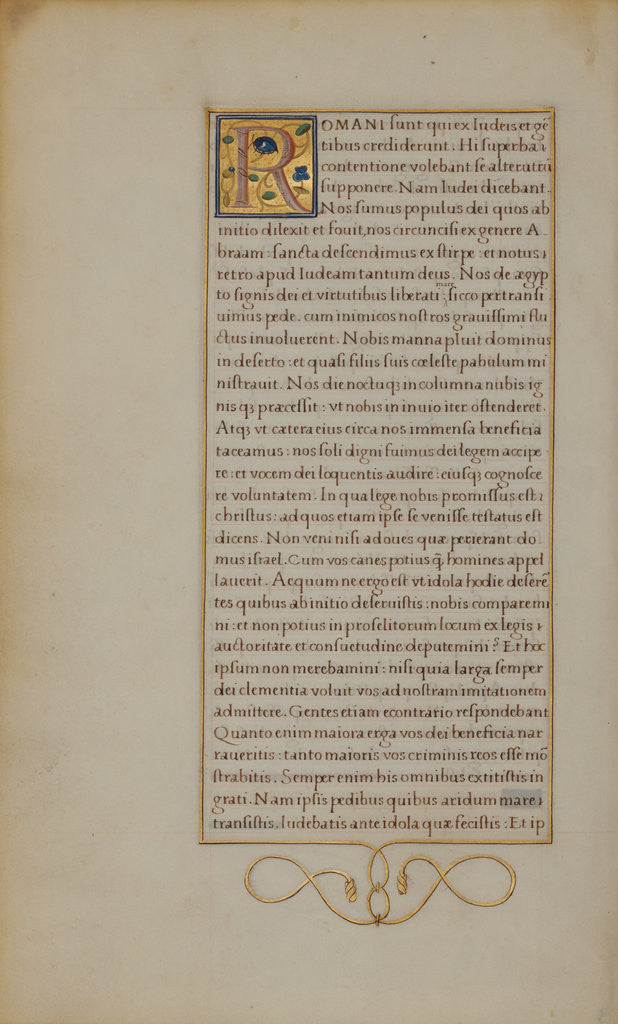 ROMANI ſunt qui ex Iudeis et gē
tibus crediderunt. Hi ſuperba ⁊
contentione volebant ſe alterutrū
ſupponere. Nam Iudei dicebant.
Nos ſumus populus dei quos ab
initio dilexit et fouit, nos circunciſi ex genere A
braam : ſancta deſcendimus ex ſtirpe : et notus ⁊
retro apud Iudeam tantum deus. Nos de ægyp
mare
to ſignis dei et virtutibus liberati : ſicco pertranſi
uimus pede. cum inimicos noſtros grauiſſimi flu
ctus inuoluerent. Nobis manna pluit dominus
in deſerto : et quaſi filiis ſuis cœleſte pabulum mi
niſtrauit. Nos die noctuqꝫ in columna nubis ig
nisqꝫ præceſſit : vt nobis in inuio iter oſtenderet.
Atqꝫ vt cætera eius circa nos immenſa beneficia
taceamus : nos ſoli digni fuimus dei legem accipe
re : et vocem dei loquentis audire : eiuſqꝫ cognoſce
re voluntatem. In qua lege nobis promiſſus eſt ⁊
chriſtus : ad quos etiam ipſe ſe veniſſe teſtatus eſt
dicens. Non veni niſi ad oues quæ perierant do
mus iſrael. Cum vos canes potius q̄ homines appel
lauerit. Aequum ne ergo eſt vt idola hodie deſerē
tes quibus ab initio deſeruiſtis : nobis comparemi
ni : et non potius in proſelitorum locum ex legis ⁊
auctoritate et conſuetudine deputemini ? Et hoc
ipſum non merebamini : niſi quia larga ſemper
dei clementia voluit vos ad noſtram imitationem
admittere. Gentes etiam econtrario reſpondebant
Quanto enim maiora erga vos dei beneficia nar
raueritis : tanto maioris vos criminis reos eſſe mō
ſtrabitis. Semper enim his omnibus extitiſtis in
grati. Nam ipſis pedibus quibus aridum mare ⁊
tranſiſtis. ludebatis ante idola quæ feciſtis : Et ip